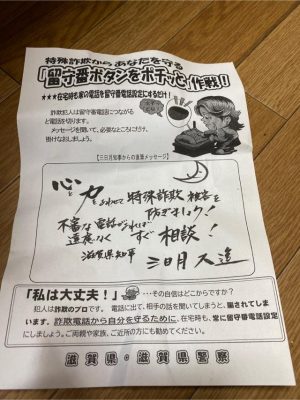 特殊詐欺からあなたを守る
「留守番ボタンをポチッと」作戦!!
★★★在宅時も家の電話を留守番電話設定にするだけ!
詐欺犯人は留守番電話につながる
と電話を切ります。
メッセージを聞いて、必要なところにだけ、
掛けなおしましょう。
【三日月知事からの直筆メッセージ】
心と力をあわせて特殊詐欺被害を
防ぎましょう!
不審な電話があれば
遠慮なくすぐ相談!
滋賀県知事
三日月大造
「私は大丈夫!」…その自信はどこからですか?
犯人は詐欺のプロです。電話に出て、相手の話を聞いてしまうと、騙されてしま
います。詐欺電話から自分を守るために、在宅時も、常に留守番電話設定
にしましょう。ご両親や家族、ご近所の方にも勧めてください。
滋賀県・滋賀県警察